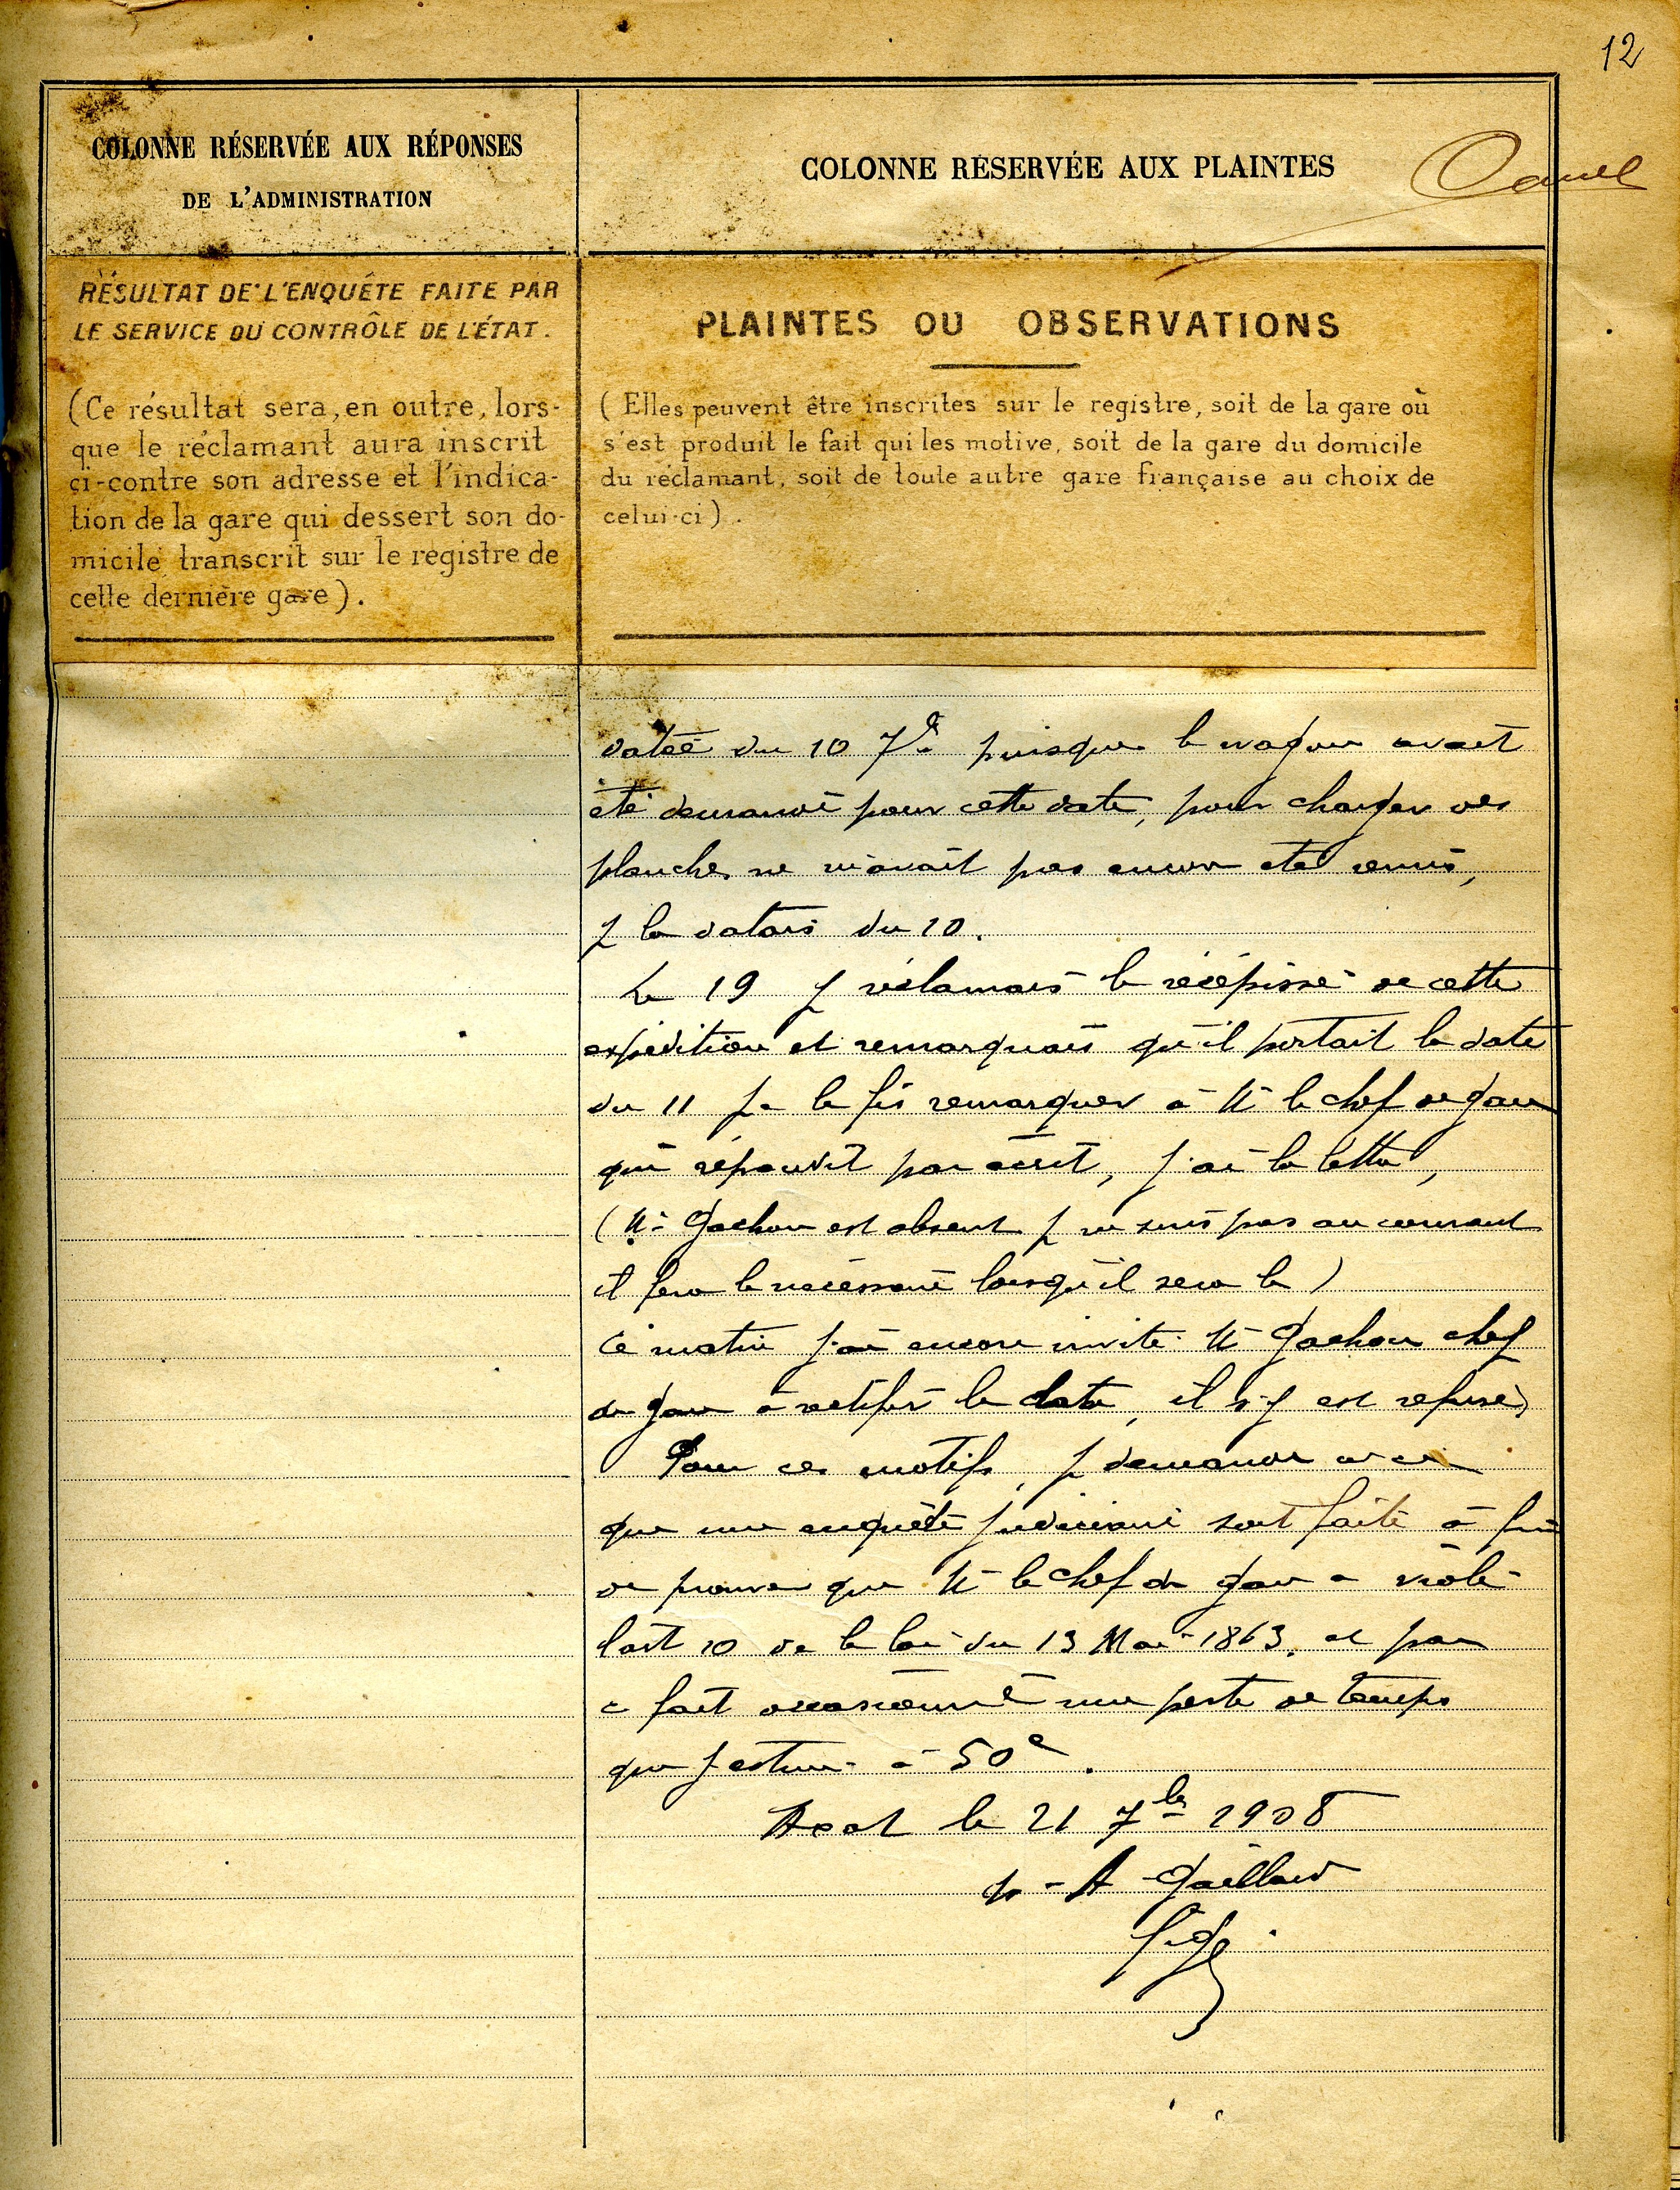 12
COLONNE RÉSERVÉE AUX RÉPONSES
DE L'ADMINISTRATION
COLONNE RÉSERVÉE AUX PLAINTES
RÉSULTAT DE L'ENQUÊTE FAITE PAR
LE SERVICE DU CONTRÔLE DE L'ÉTAT.
(Ce résultat sera, en outre, lors-
que le réclamant aura inscrit
ci-contre son adresse et l'indica-
tion de la gare qui dessert son do-
micile transcrit sur le registre de
cette dernière gare).
PLAINTES OU OBSERVATIONS
(Elles peuvent être inscrites sur le registre, soit de la gare où
s'est produit le fait qui les motive, soit de la gare du domicile
du réclamant, soit de toute autre gare française au choix de
celui-ci).
datée du 10 7e puisque le wagon avait
été demandé pour cette date, pour charger des
planches ne m'avait pas encore été remis,
je la datais du 10.
Le 19 je réclamais le récépissé de cette
expédition et remarquais qu'il portait la date
du 11 je le fis remarquer à Mr le chef de gare
qui répondit par écrit, j'ai la lettre,
(Mr Gachon est absent je ne suis pas au courant
il fera le nécessaire lorsqu'il sera la)
Ce matin j'ai encore invité Mr Gachon chef
de gare à rectifier la date, il s'y est refusé,
Pour ces motifs, je demande
que une enquête judiciaire soit faite à fin
de prouver que Mr le chef de gare a violé
l'art 10 de la loi du 13 Mai 1863, et par
ce fait occasionné une perte de temps
que j'estime à 50
Axat le 21 7bre 1908
p - A Gaillard